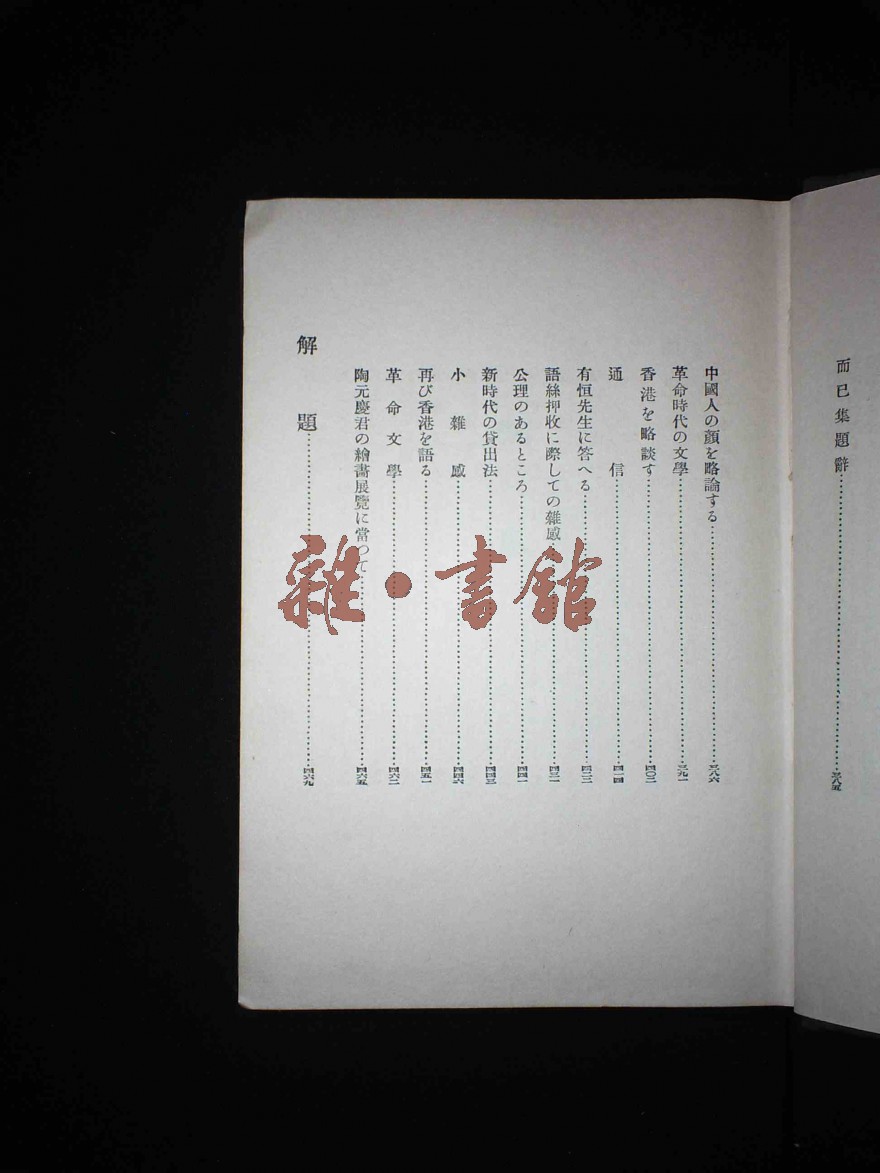 而已集題辭……三八五
中國人の顏を略論する……三八六
革命時代の文學……三九一
香港を略談す……四〇二
通信……四一四
有恒先生に答へる……四二二
語絲押收に際しての雜感……四三一
公理のあるところ……四四一
新時代の貸出法……四四三
小雜感……四四六
再び香港を語る……四五一
革命文學……四六二
陶元慶君の繪畫展覽に當つて……四六五
解題……四六九
雜·書館